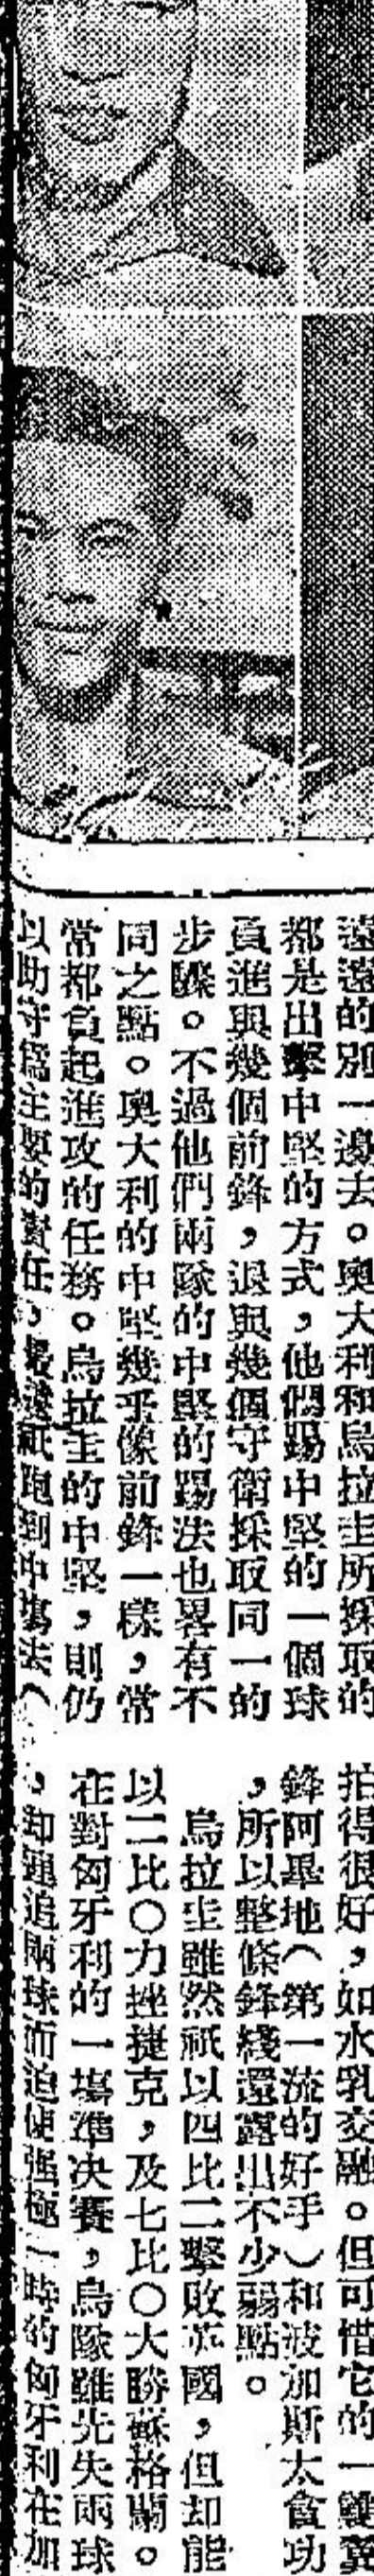 遠遠的別一邊去。奧大利和烏拉圭所採取的
都是出擊中堅的方式，他們踢中堅的一個球
員進與幾個前鋒，退與幾個守衛採取同一的
步驟。不過他們兩隊的中堅的踢法也畧有不
同之點。奧大利的中堅幾乎像前鋒一樣，常
常都負起進攻的任務。烏拉圭的中堅，則仍
以助守爲主要的責任，最遠祇跑到中塲去（
拍得很好，如水乳交融。但可惜它的一雙翼
鋒阿畢地（第一流的好手）和波加斯太貪功
，所以整條鋒綫還露出不少弱點。
烏拉圭雖然祇以四比二擊敗英國，但却能
以二比〇力挫捷克，及七比〇大勝蘇格蘭。
在對匈牙利的一塲準决賽，烏隊雖先失兩球
，却連追兩球而迫使强極一時的匈牙利在加